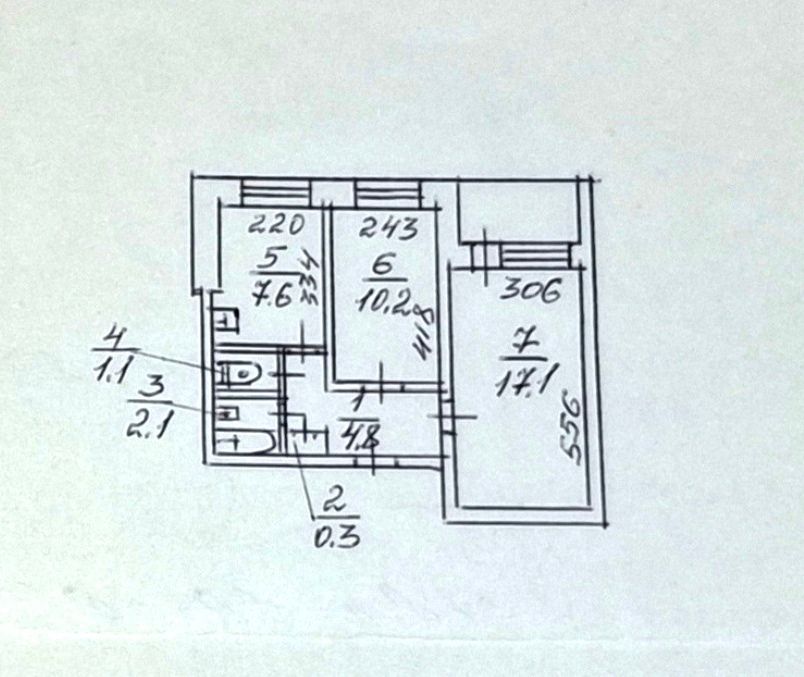 220
243
5
7.6
334
6
10.2
418
306
7
17.1
556
4
1.1
3
2.1
1
4.8
2
0.3